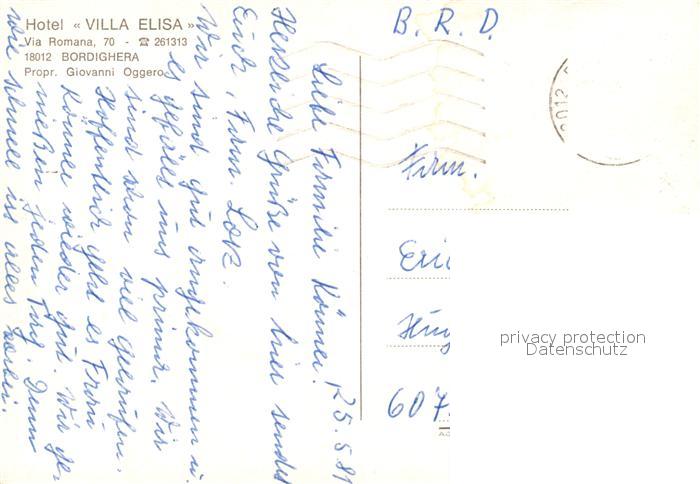 Hotel « VILLA ELISA »
Via Romana, 70 - ☎ 261313
18012 BORDIGHERA
Propr. Giovanni Oggero
25.5.81
Liebe Familie Körner!
Herzliche Grüße von hier sendet
Euch, Fam. Lotz.
Wir sind gut angekommen u.
es gefällt uns prima. Wir
sind schon viel gelaufen.
Hoffentlich geht es Frau
Körner wieder gut. Wir ge-
nießen jeden Tag. Denn
wie schnell ist alles vorbei.
B. R. D.
Fam.
Eri
Hüg
607
privacy protection
Datenschutz